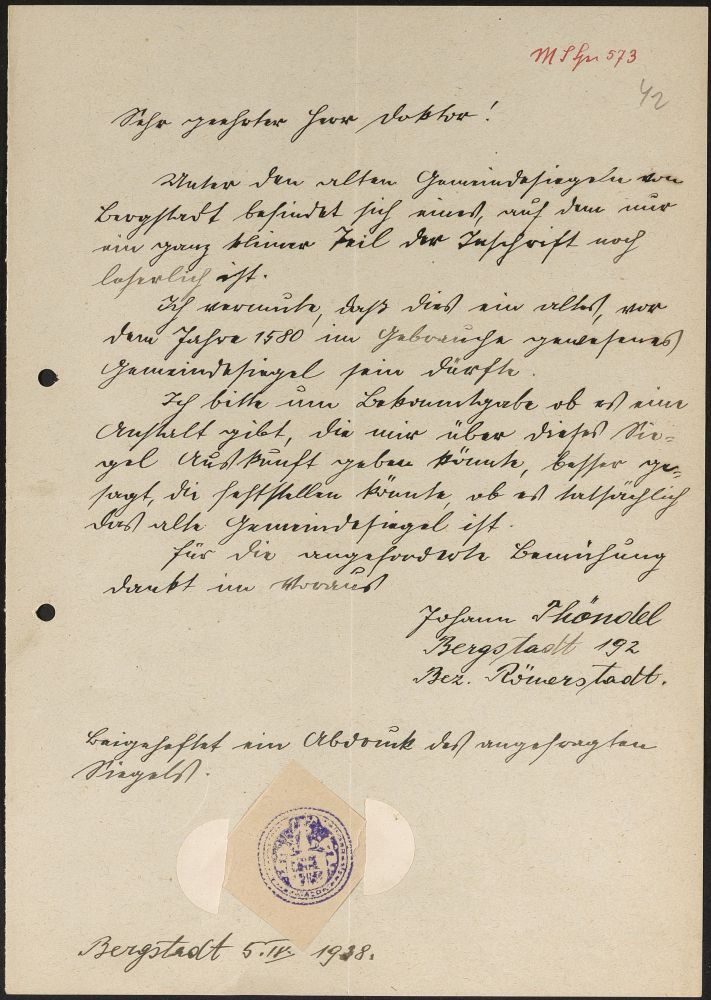 M S Gr 573
42
Sehr geehrter Herr Doktor!
Unter den alten Gemeindesiegeln von
Bergstadt befindet sich eines, auf dem nur
ein ganz kleiner Teil der Inschrift noch
leserlich ist.
Ich vermute, daß dies ein altes, vor
dem Jahre 1580 im Gebrauche gewesenes
Gemeindesiegel sein dürfte.
Ich bitte um Bekanntgabe ob es eine
Anstalt gibt, die mir über dieses Sie=
gel Auskunft geben könnte, besser ge=
sagt, die feststellen könnte, ob es tatsächlich
das alte Gemeindesiegel ist.
Für die angeforderte Bemühung
dankt im Voraus
Johann Thöndel
Bergstadt 192
Bez. Römerstadt.
Beigeheftet ein Abdruck des angefragten
Siegels.
Bergstadt 5. IV. 1938.